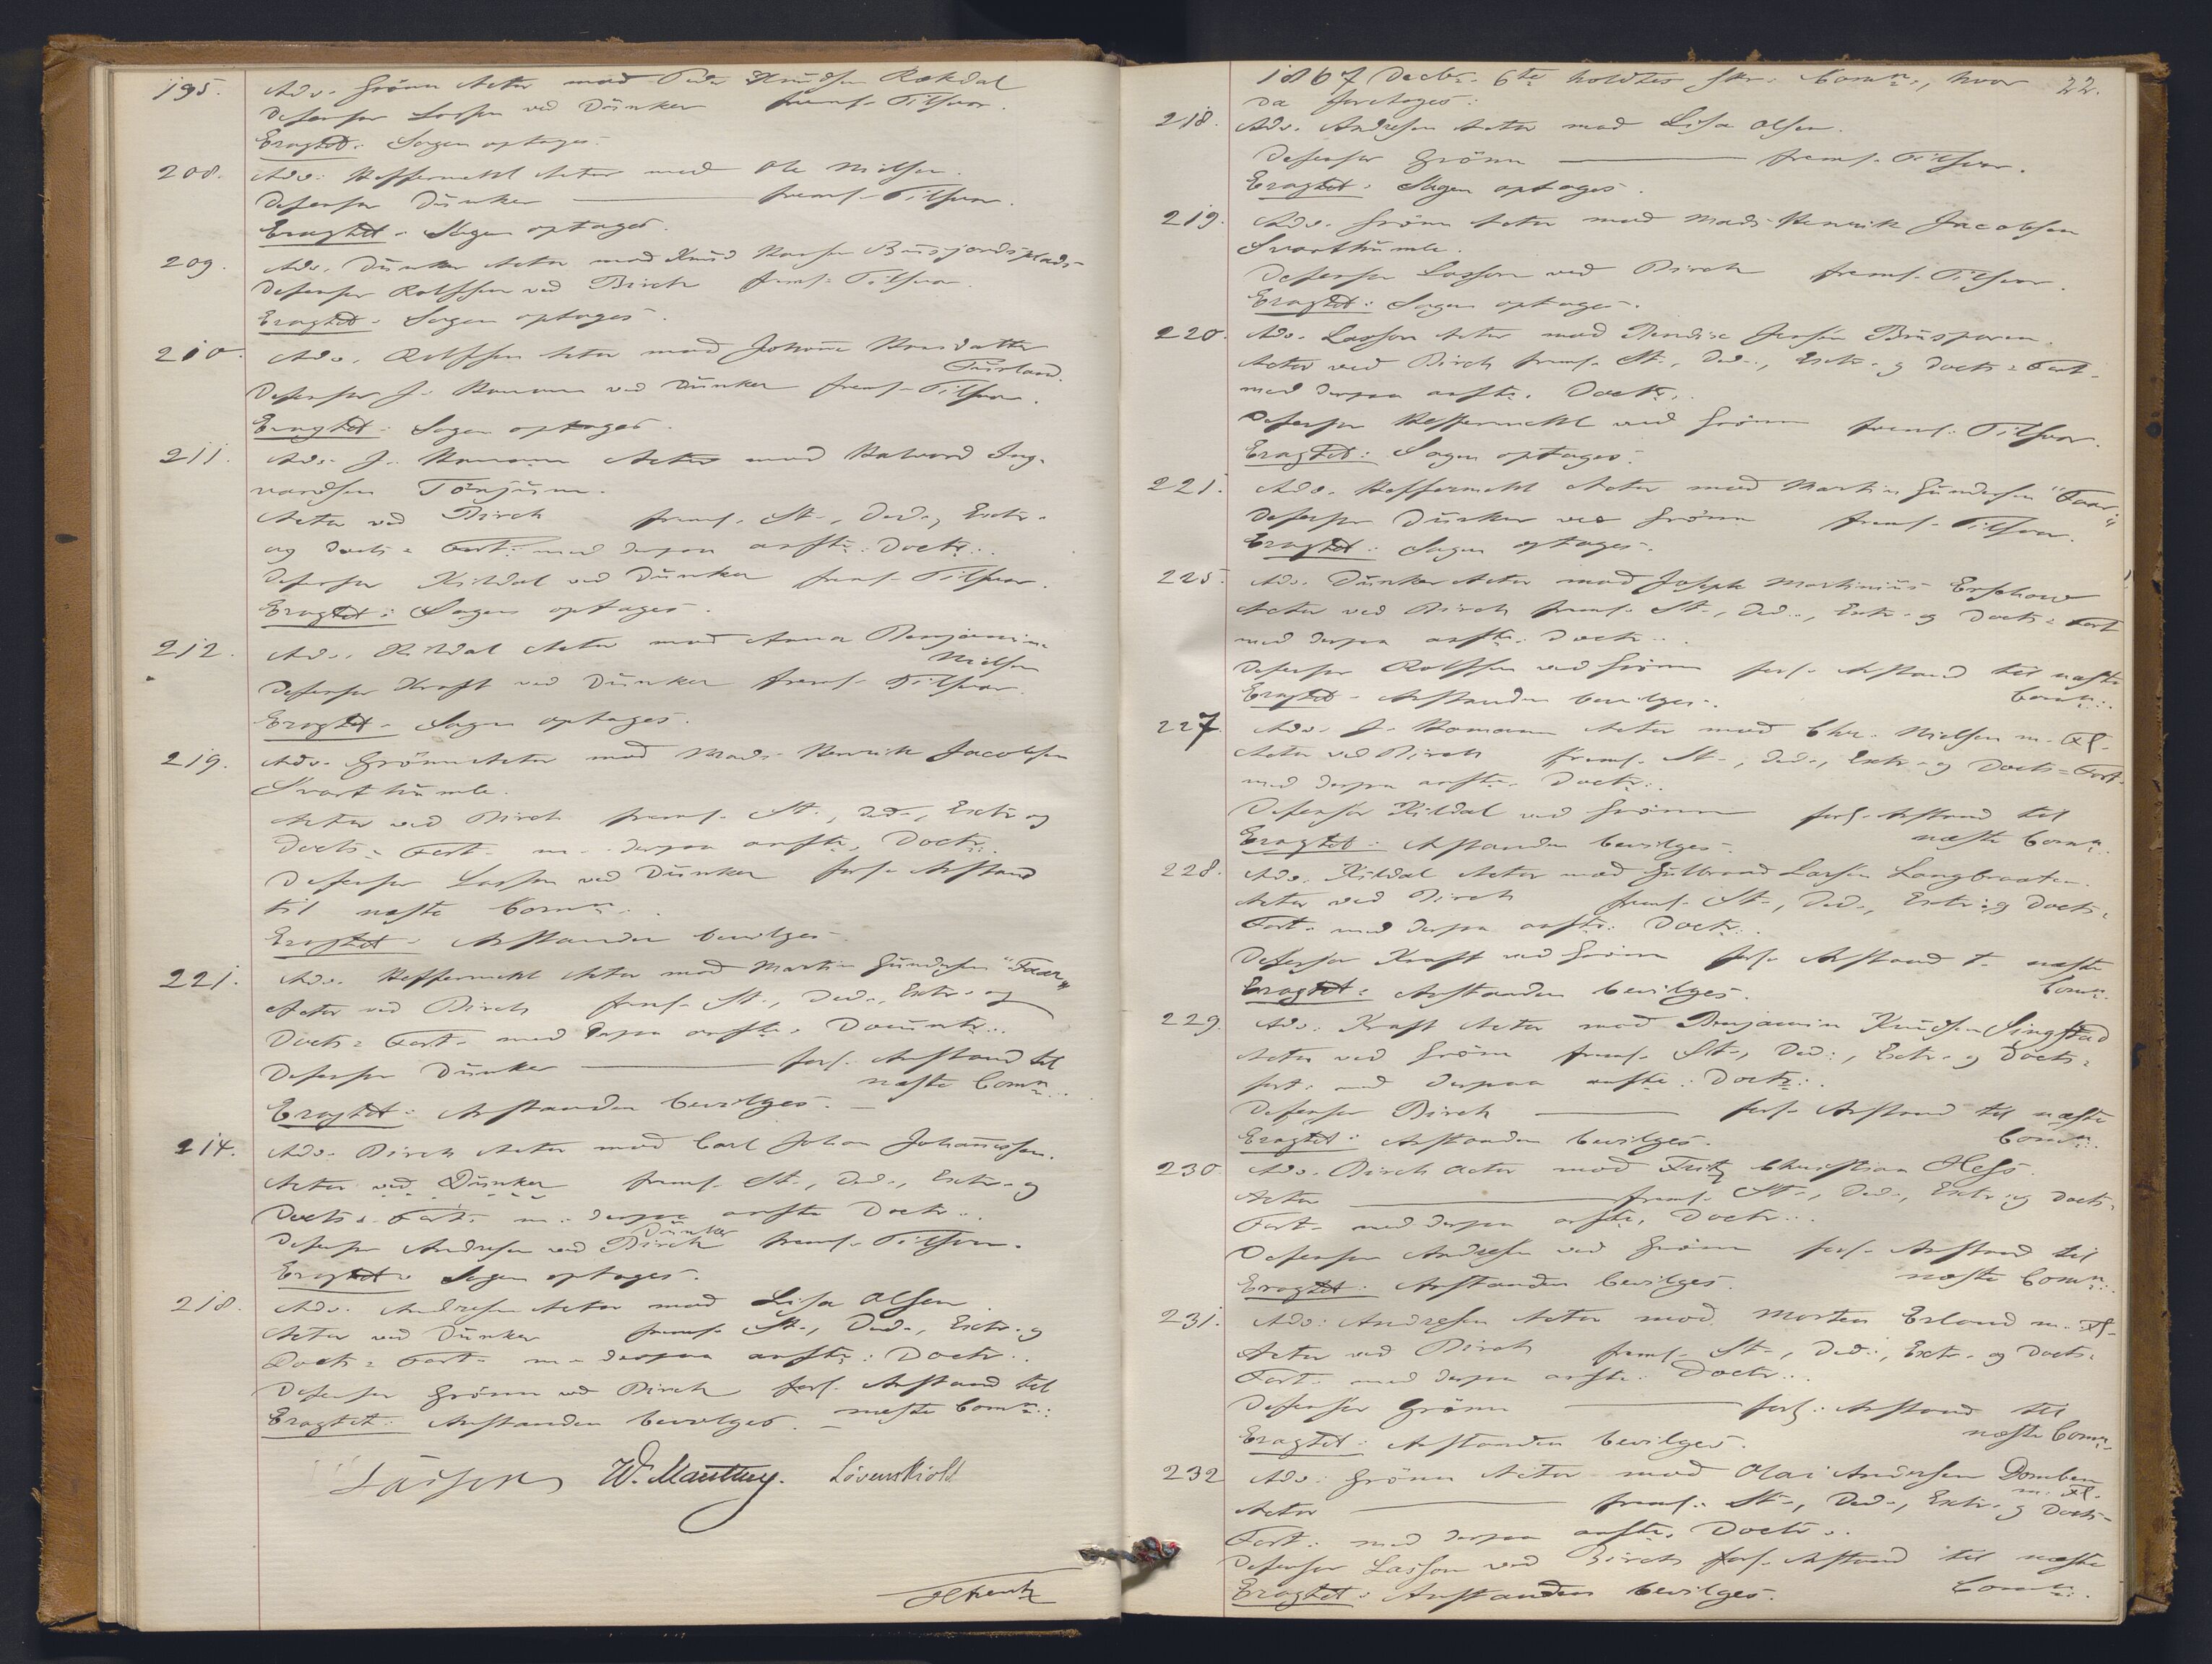 195. Adv. Grönn Actor mod Peder Knudsen Rækdal
Defensor Lasson ved Dünker fremf. Tilsvar.
Eragtet: Sagen optages.
208. Adv. Heffermehl Actor mod Ole Nielsen.
Defensor Dünker — fremf. Tilsvar.
Eragtet: Sagen optages.
209. Adv. Dünker Actor mod Knud Hansen
Defensor Rolfsen ved Birch fremf. Tilsvar.
Eragtet: Sagen optages.
210. Adv. Rolfsen Actor mod Johanne Hansdatter
Defensor J. Homann ved Dünker fremf. Tilsvar.
Eragtet: Sagen optages.
211. Adv. J. Homann Actor mod Halvord Ing-
vardsen Tönjum.
Actor ved Birch fremf. St., Ded., Extr.
og Docts= Fort. med derpaa anfte. Doctr.
Defensor Kildal ved Dünker fremf. Tilsvar.
Eragtet: Sagen optages.
212. Adv. Kildal Actor mod Anna Benjamin
Nielsen
Defensor Kraft ved Dünker fremf. Tilsvar.
Eragtet: Sagen optages.
219. Adv. Grönn Actor mod Mads Henrik Jacobsen
Svarthumle.
Actor ved Birch fremf. St., Ded., Extr. og
Docts= Fort. m. derpaa anfte. Doctr.
Defensor Lasson ved Dünker forl. Anstand
til næste Comn.
Eragtet: Anstanden bevilges.
221. Adv. Heffermehl Actor mod Martin Gundersen "Faar"
Actor ved Birch fremf. St., Ded., Extr. og
Docts= Fort. med derpaa anfte. Doctr.
Defensor Dünker — forl. Anstand til
næste Comn.
Eragtet: Anstanden bevilges.
214. Adv. Birch Actor mod Carl Johan Johannessen.
Actor ved Dünker fremf. St., Ded., Extr. og
Docts= Fort. m. derpaa anfte Doctr.
Dünker
Defensor Andresen ved Birch fremf. Tilsvar.
Eragtet: Sagen optages.
218. Adv. Andresen Actor mod Lisa Olsen
Actor ved Dünker fremf. St., Ded., Extr. og
Docts= Fort. m. derpaa anfte: Doctr.
Defensor Grönn ved Birch forl. Anstand til
Eragtet: Anstanden bevilges. næste Comn:
Lasson W. Manthey. Lövenskiold
1867 Decbr. 6te holdtes Comn., hvor 22.
da foretoges:
218. Adv. Andresen Actor mod Lisa Olsen.
Defensor Grönn — fremf. Tilsvar.
Eragtet: Sagen optages.
219. Adv. Grönn Actor mod Mads Henrik Jacobsen
Svarthumle.
Defensor Lasson ved Birch fremf. Tilsvar.
Eragtet: Sagen optages.
220. Adv. Lasson Actor mod Jensen
Actor ved Birch fremf. St., Ded., Extr. og Docts= Fort.
med derpaa anfte. Doctr.
Defensor Heffermehl ved Grönn fremf. Tilsvar.
Eragtet: Sagen optages.
221. Adv. Heffermehl Actor mod Martin Gundersen "Faar"
Defensor Dünker ved Grönn fremf. Tilsvar.
Eragtet: Sagen optages.
225. Adv. Dünker Actor mod Joseph Martinius
Actor ved Birch fremf. St., Ded., Extr. og Docts= Fort
med derpaa anfte: Doctr.
Defensor Rolfsen ved Grönn forl. Anstand til næste
Eragtet: Anstanden bevilges. Comn.
227. Adv. J. Homann Actor mod Chr. Nielsen m. Fl.
Actor ved Birch fremf. St., Ded., Extr. og Docts= Fort.
med derpaa anfte. Doctr.
Defensor Kildal ved Grönn forl. Anstand til
Eragtet: Anstanden bevilges. næste Comn.
228. Adv. Kildal Actor mod Gulbrand Larsen Langbraaten.
Actor ved Birch fremf. St., Ded., Extr. og Docts=
Fort. med derpaa anfte: Doctr.
Defensor Kraft ved Grönn forl. Anstand t. næste
Eragtet: Anstanden bevilges. Comn.
229. Adv. Kraft Actor mod Benjamin Knudsen Singstad
Actor ved Grönn fremf. St., Ded:, Extr. og Docts=
fort. med derpaa anfte: Doctr.
Defensor Birch — forl. Anstand til næste
Eragtet: Anstanden bevilges. Comn.
230. Adv. Birch Actor mod Fritz Christian Hess.
Actor — fremf. St., Ded., Extr. og Docts=
Fort. med derpaa anfte. Doctr.
Defensor Andresen ved Grönn forl. Anstand til
Eragtet: Anstanden bevilges. næste Comn.
231. Adv: Andresen Actor mod Morten Erland m. Fl.
Actor ved Birch fremf. St., Ded:, Extr. og Docts=
Fort. med derpaa anfte: Doctr.
Defensor Grönn — forl: Anstand til
Eragtet: Anstanden bevilges. næste Comn.
232 Adv: Grönn Actor mod Olai Andersen Domben
m. Fl.
Actor — fremf: St., Ded., Extr. og Docts=
Fort: med derpaa anfte. Doctr.
Defensor Lasson ved Birch forl. Anstand til næste
Eragtet: Anstanden bevilges. Comn.